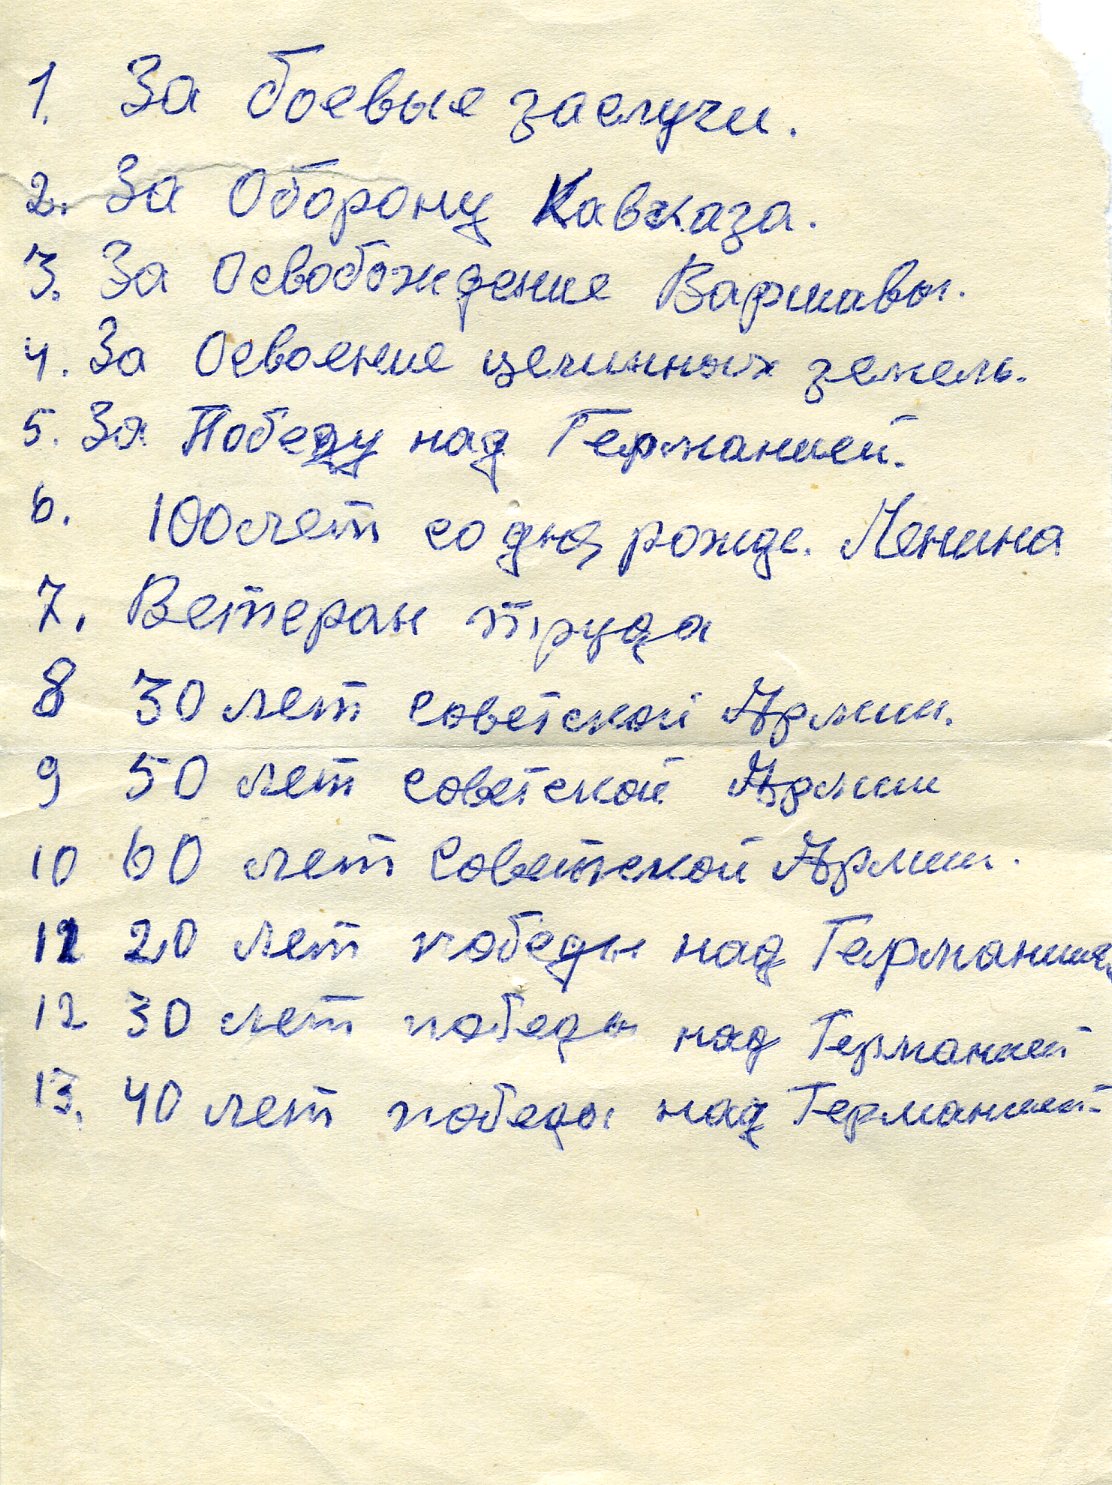 1. За боевые заслучи.
2. За Оборону Кавказа.
3. За Освобождение Варшавы.
4. За Освоение целинных земель.
5. За Победу над Германией.
6. 100 лет со дня рожде. Ленина
7. Ветеран труда
8 30 лет советской Армии.
9 50 лет советской Армии
10 60 лет Советской Армии.
11 20 лет победы над Германией
12 30 лет победы над Германией
13. 40 лет победы над Германией.